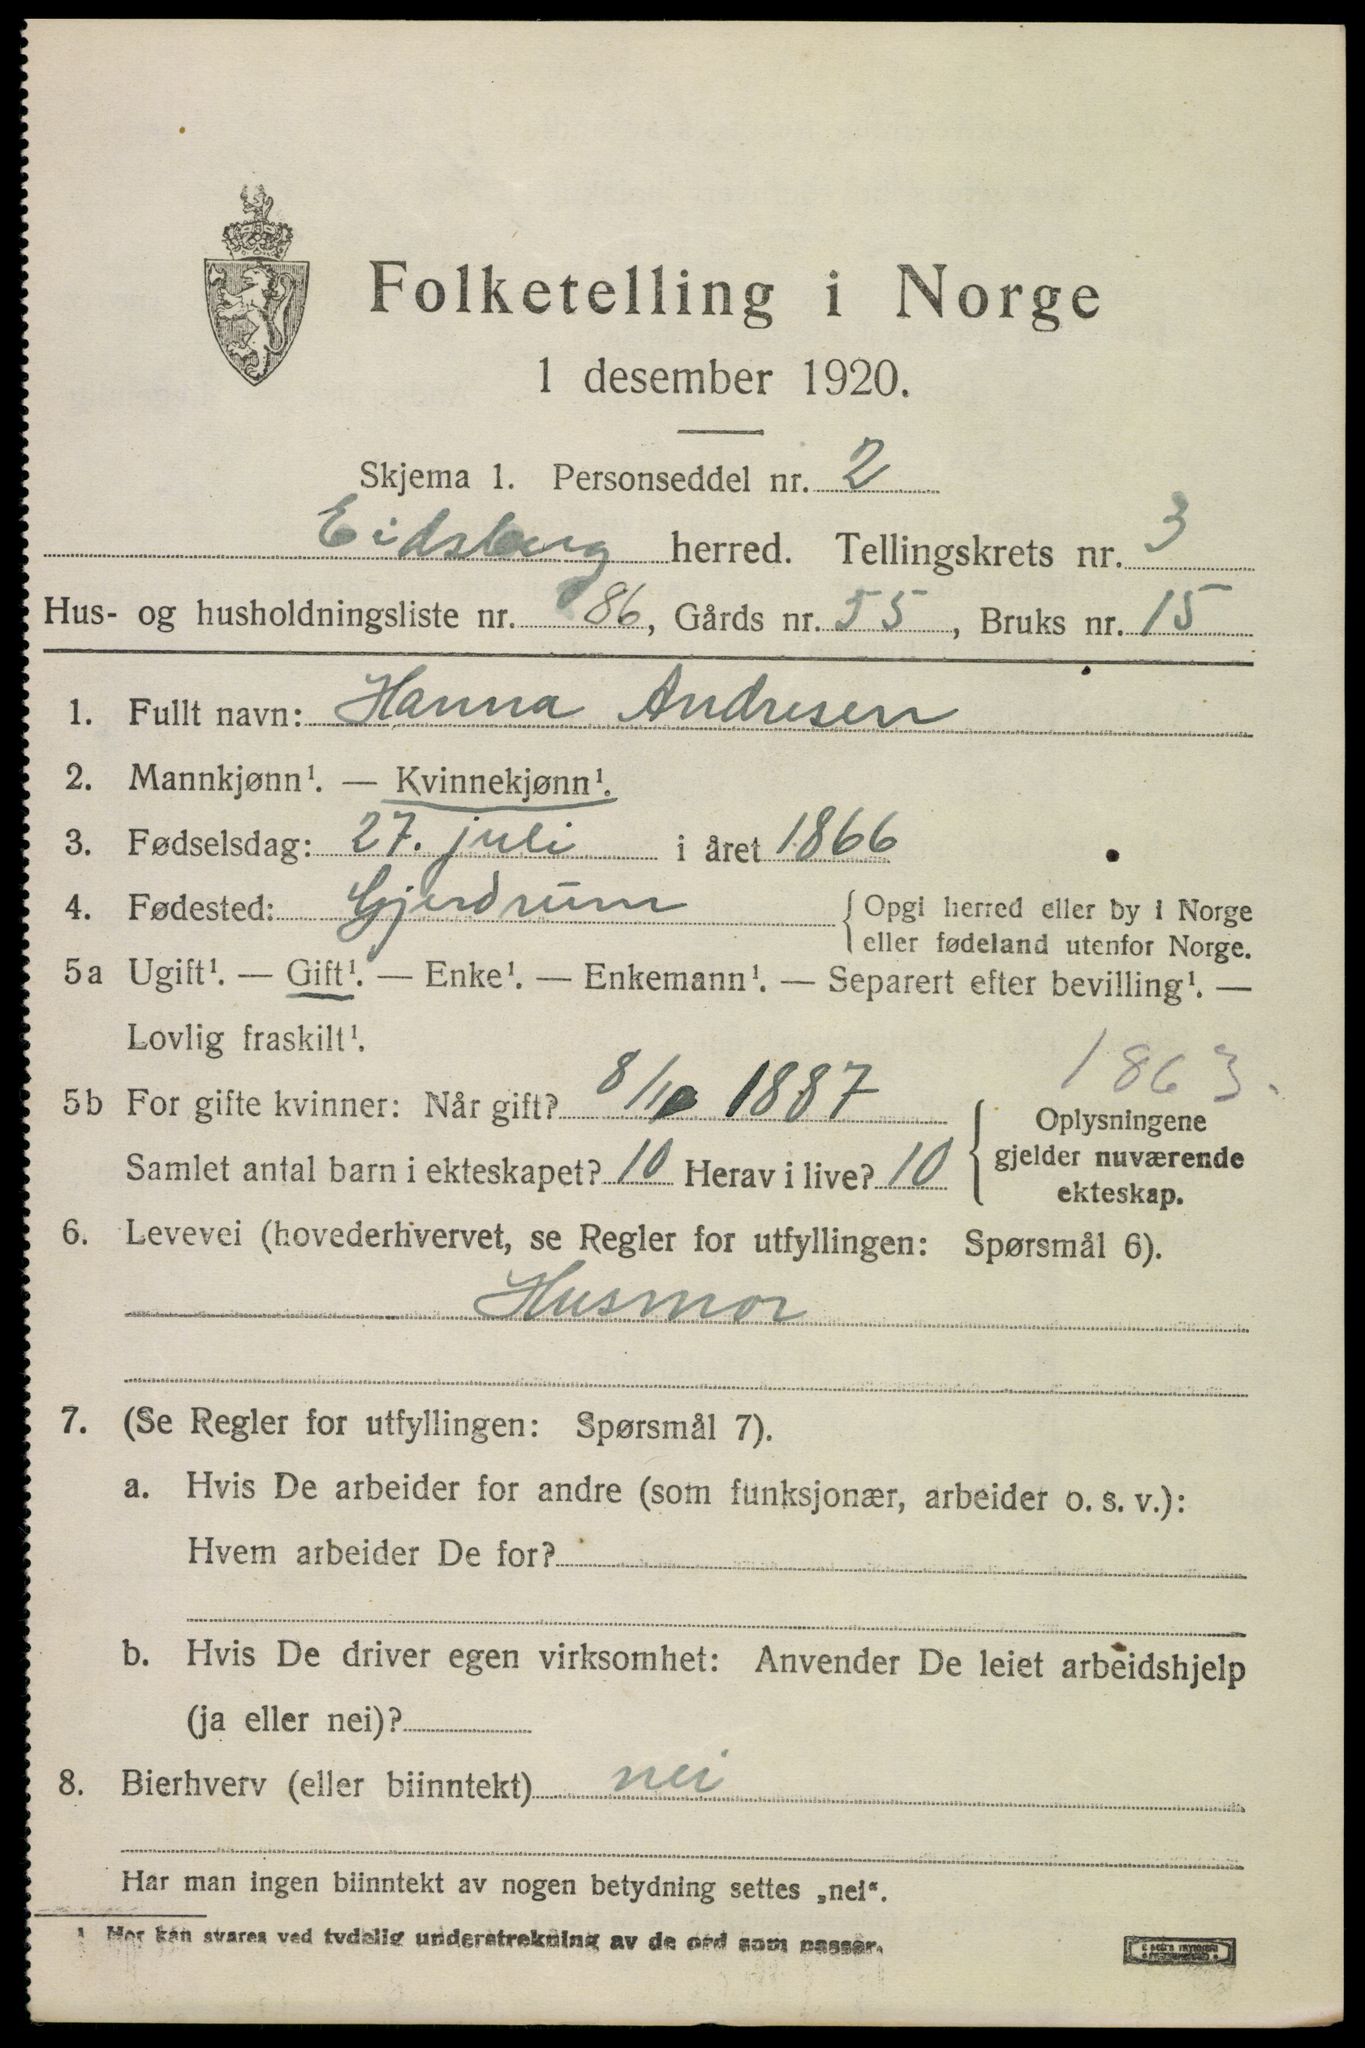 Folketelling i Norge
1 desember 1920.
Skjema 1. Personseddel nr. 2
Eidsberg herred. Tellingskrets nr. 3
Hus- og husholdningsliste nr. 86, Gårds nr. 55, Bruks nr. 15
1. Fullt navn: Hanna Andresen
2. Mannkjønn¹. — Kvinnekjønn¹.
3. Fødselsdag: 27. juli i året 1866
4. Fødested: Gjerdrum { Opgi herred eller by i Norge
eller fødeland utenfor Norge.
5a Ugift¹. — Gift¹. — Enke¹. — Enkemann¹. — Separert efter bevilling¹. —
Lovlig fraskilt¹.
1863.
5b For gifte kvinner: Når gift? 8/10 1887
Samlet antal barn i ekteskapet? 10 Herav i live? 10
{ Oplysningene
gjelder nuværende
ekteskap.
6. Levevei (hovederhvervet, se Regler for utfyllingen: Spørsmål 6).
Husmor
7. (Se Regler for utfyllingen: Spørsmål 7).
a. Hvis De arbeider for andre (som funksjonær, arbeider o. s. v.):
Hvem arbeider De for?
b. Hvis De driver egen virksomhet: Anvender De leiet arbeidshjelp
(ja eller nei)?
8. Bierhverv (eller biinntekt) nei
Har man ingen biinntekt av nogen betydning settes „nei“.
1 Her kan svares ved tydelig understrekning av de ord som passer.